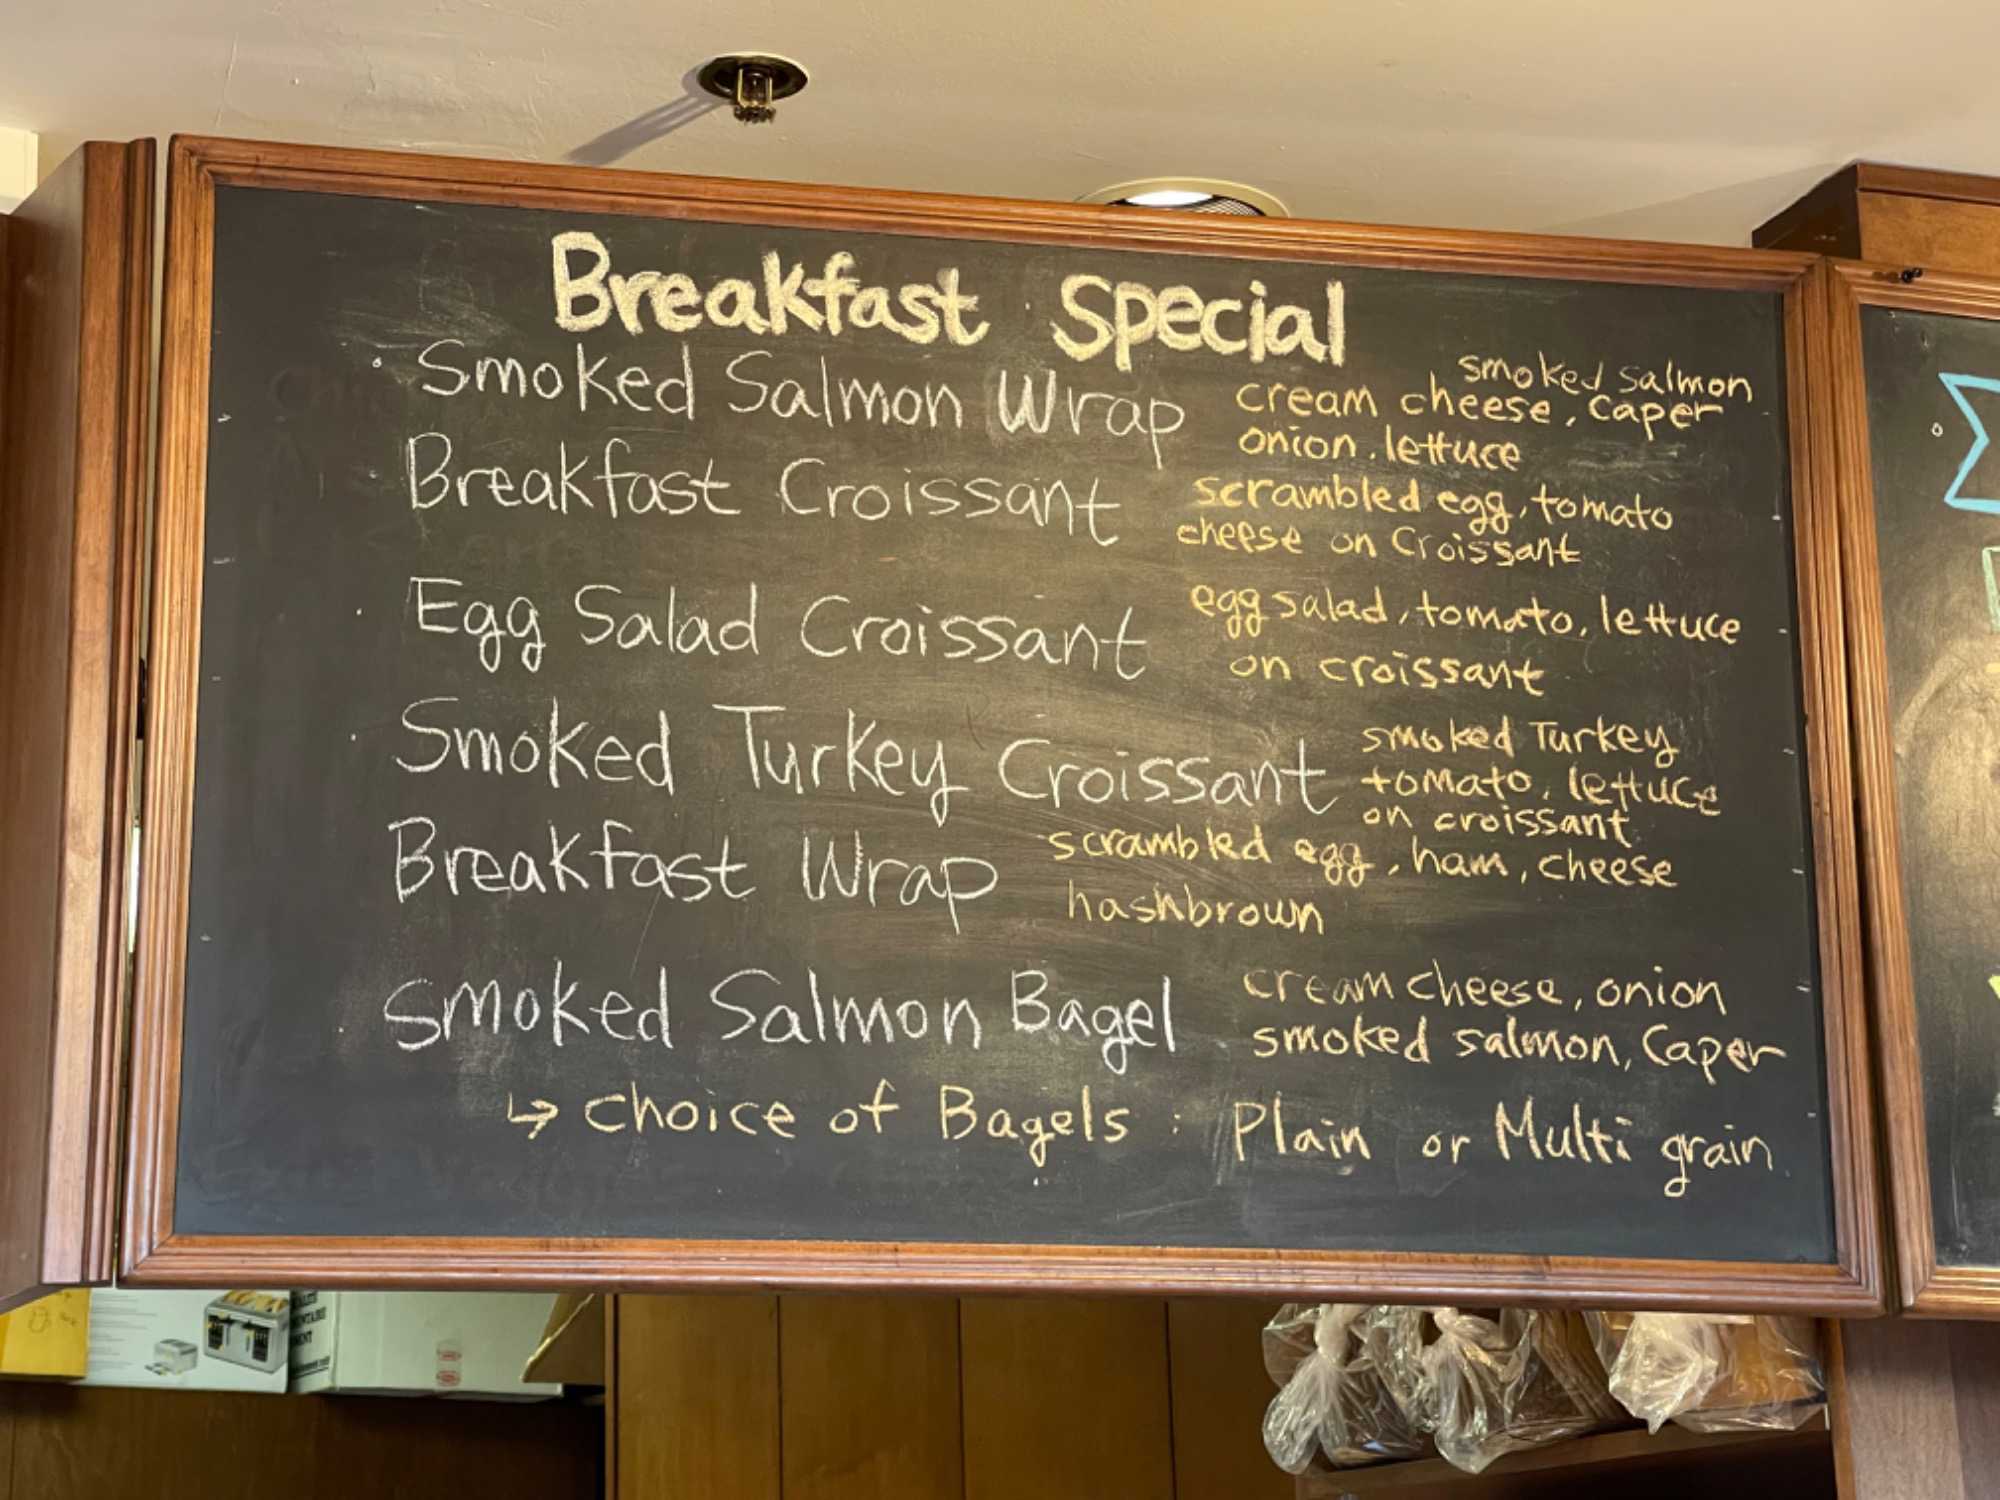 Breakfast Special
Smoked Salmon Wrap
smoked salmon
cream cheese, caper
onion, lettuce
Breakfast Croissant
scrambled egg, tomato
cheese on Croissant
Egg Salad Croissant
egg salad, tomato, lettuce
on croissant
Smoked Turkey Croissant
smoked Turkey
tomato, lettuce
on croissant
Breakfast Wrap
scrambled egg, ham, cheese
hashbrown
Smoked Salmon Bagel
cream cheese, onion
smoked salmon, Caper
↳ choice of Bagels : Plain or Multi grain